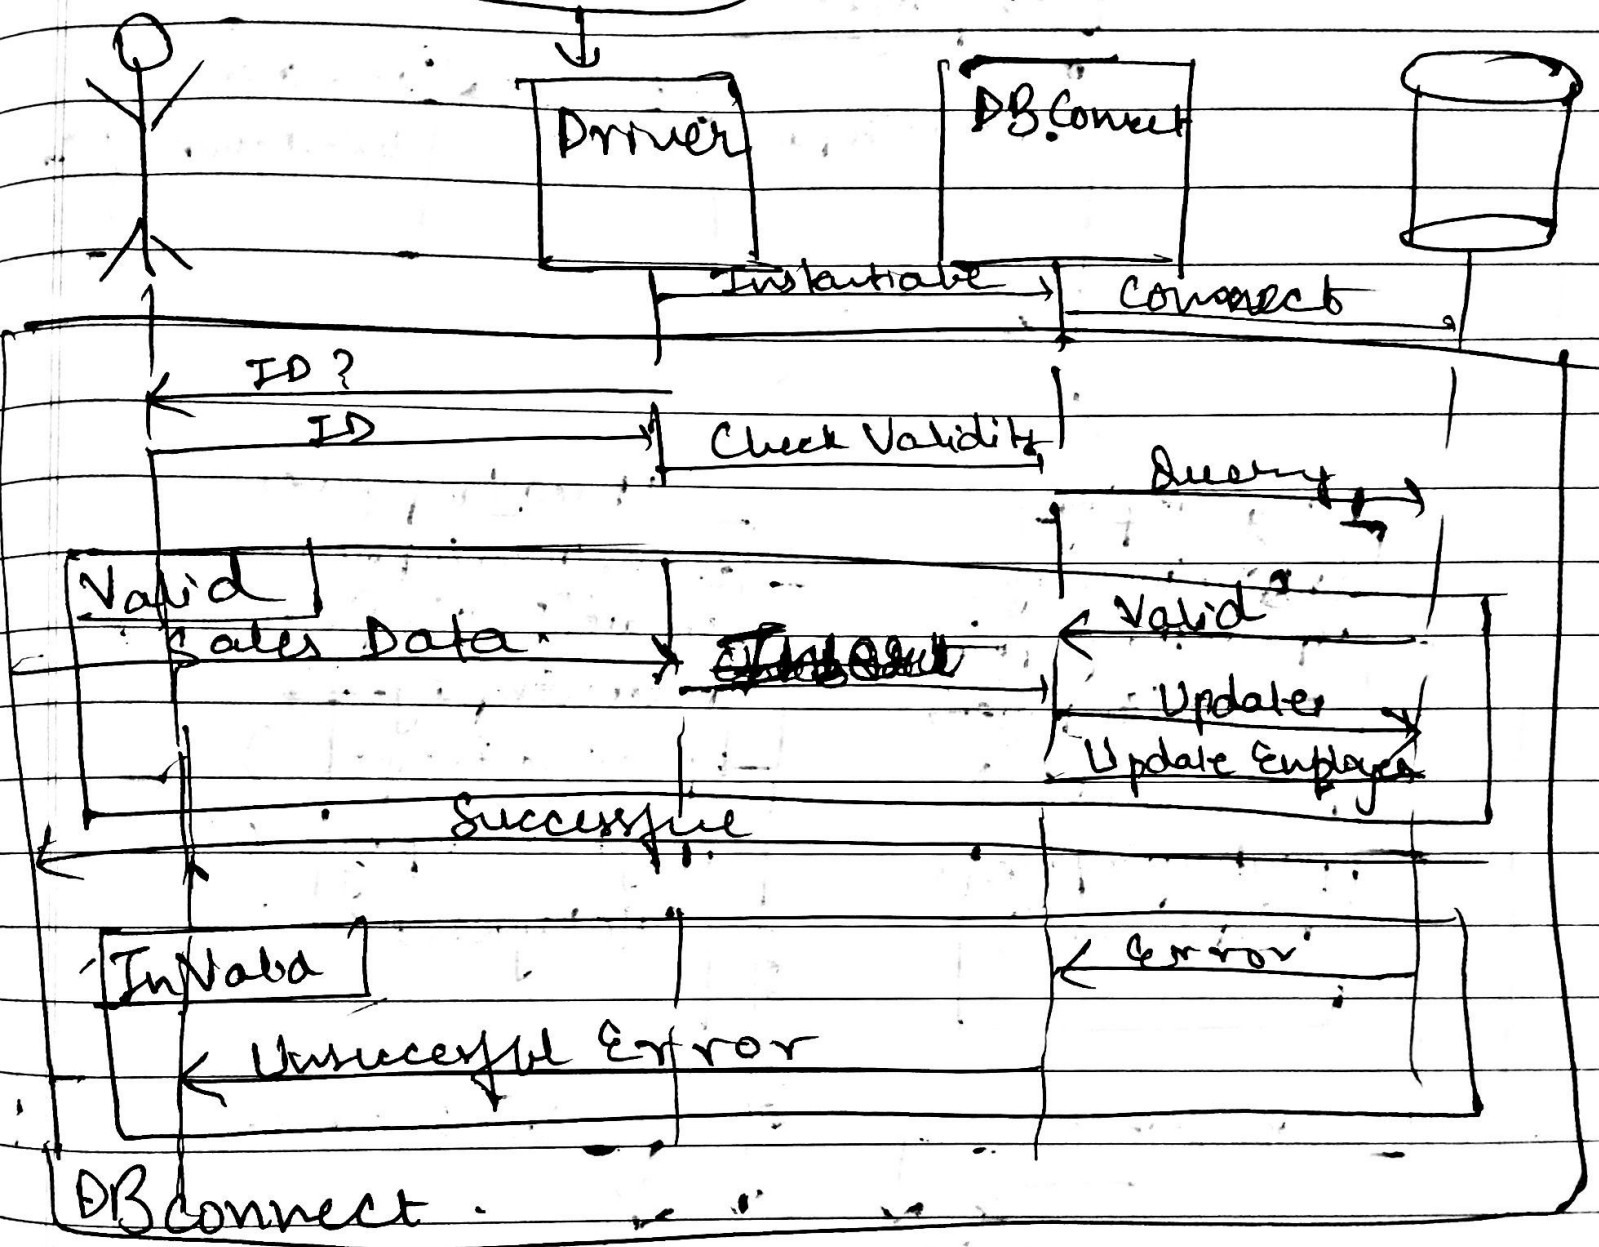 Driver
DB.Connect
Instantiate
Connect
ID ?
ID
Check Validity
Query
Valid
Valid
Sales Data
Updates
Update Employee
Successful
InValid
Error
Unsuccessful Error
DBconnect